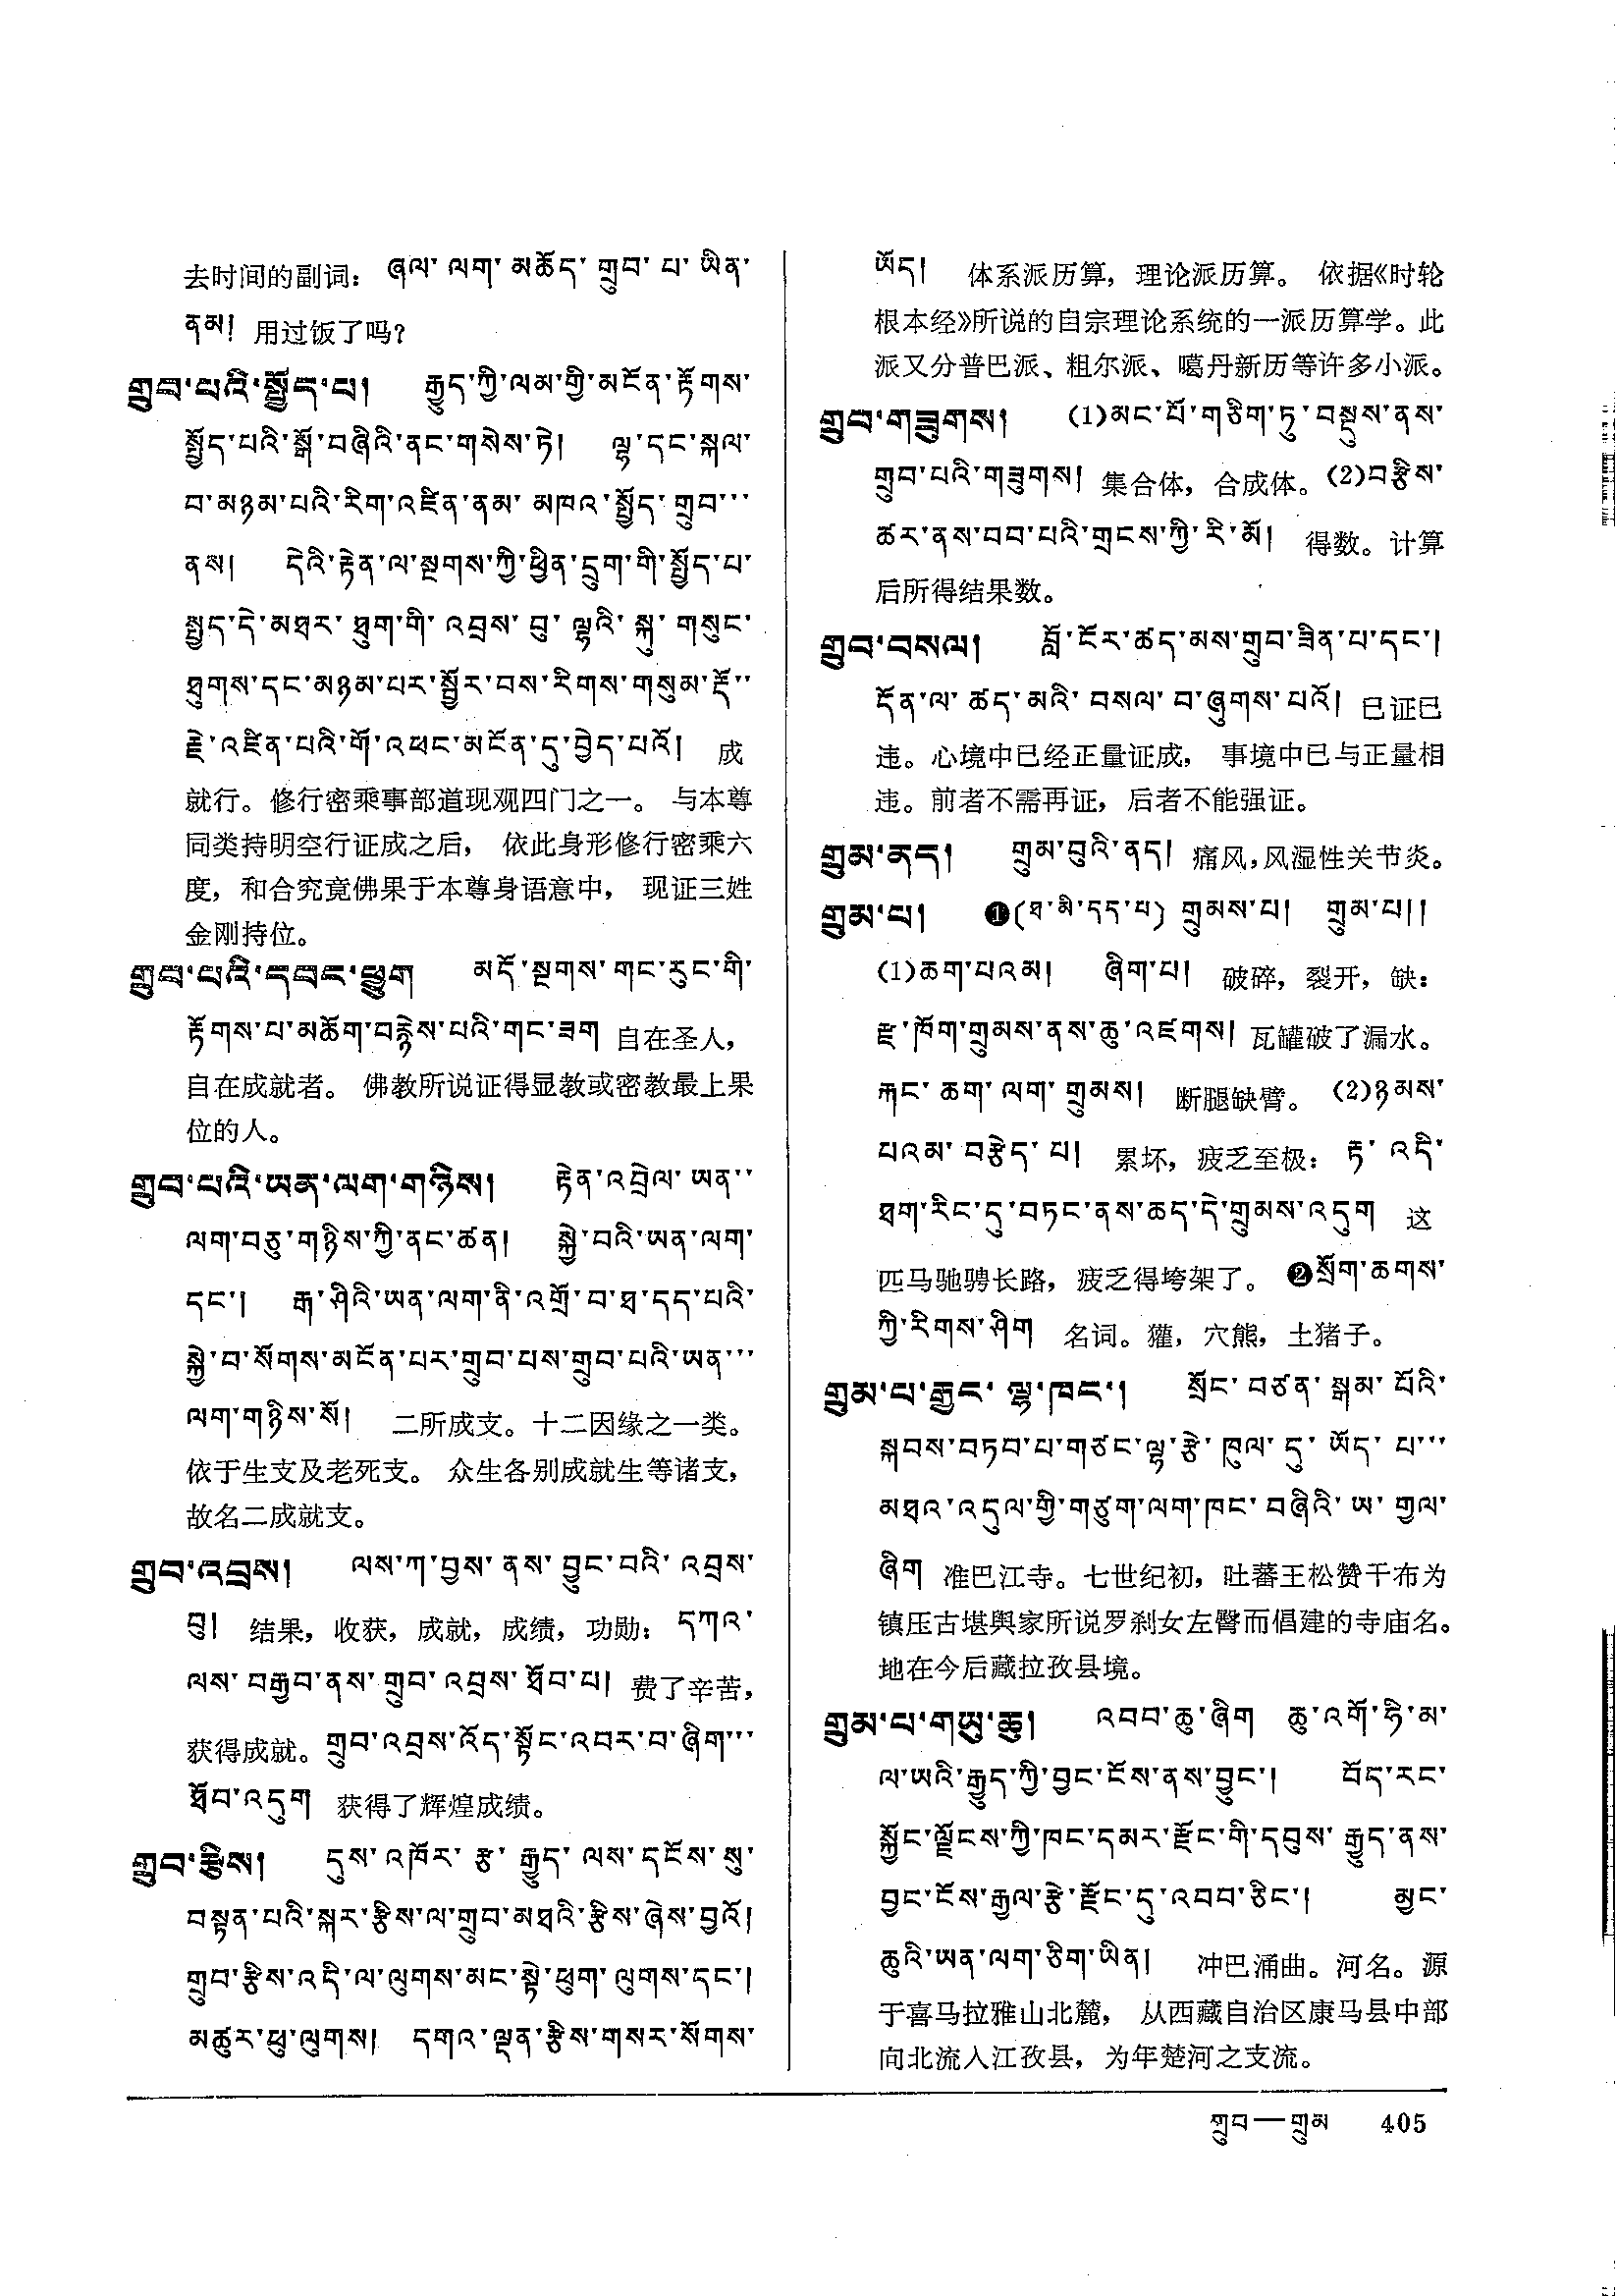 去时间的副词： ཞལ་ ལག་ མཆོད་ གྲུབ་ པ་ ཡིན་
ནམ། 用过饭了吗？
གྲུབ་པའི་སྤྱོད་པ། རྒྱུད་ཀྱི་ལམ་གྱི་མངོན་རྟོགས་
སྤྱོད་པའི་སྒོ་བཞིའི་ནང་གསེས་ཏེ། ལྷ་དང་སྐལ་
བ་མཉམ་པའི་རིག་འཛིན་ནམ་ མཁའ་སྤྱོད་ གྲུབ་་་
ནས། དེའི་རྟེན་ལ་སྔགས་ཀྱི་ཕྱིན་དྲུག་གི་སྤྱོད་པ་
སྤྱད་དེ་མཐར་ ཐུག་གི་ འབྲས་ བུ་ ལྷའི་ སྐུ་ གསུང་
ཐུགས་དང་མཉམ་པར་སྦྱོར་བས་རིགས་གསུམ་རྡོ་་
རྗེ་འཛིན་པའི་གོ་འཕང་མངོན་དུ་བྱེད་པའོ། 成
就行。修行密乘事部道现观四门之一。 与本尊
同类持明空行证成之后， 依此身形修行密乘六
度，和合究竟佛果于本尊身语意中， 现证三姓
金刚持位。
གྲུབ་པའི་དབང་ཕྱུག མདོ་སྔགས་གང་རུང་གི་
རྟོགས་པ་མཆོག་བརྙེས་པའི་གང་ཟག 自在圣人，
自在成就者。 佛教所说证得显教或密教最上果
位的人。
གྲུབ་པའི་ཡན་ལག་གཉིས། རྟེན་འབྲེལ་ ཡན་་
ལག་བཅུ་གཉིས་ཀྱི་ནང་ཚན། སྐྱེ་བའི་ཡན་ལག་
དང་། རྒ་ཤིའི་ཡན་ལག་ནི་འགྲོ་བ་ཐ་དད་པའི་
སྐྱེ་བ་སོགས་མངོན་པར་གྲུབ་པས་གྲུབ་པའི་ཡན་་་
ལག་གཉིས་སོ། 二所成支。十二因缘之一类。
依于生支及老死支。 众生各别成就生等诸支，
故名二成就支。
གྲུབ་འབྲས། ལས་ཀ་བྱས་ ནས་ བྱུང་བའི་ འབྲས་
བུ། 结果，收获，成就，成绩，功勋： དཀའ་
ལས་ བརྒྱབ་ནས་ གྲུབ་ འབྲས་ ཐོབ་པ། 费了辛苦，
获得成就。གྲུབ་འབྲས་འོད་སྟོང་འབར་བ་ཞིག་་་
ཐོབ་འདུག 获得了辉煌成绩。
གྲུབ་རྩིས། དུས་འཁོར་ རྩ་ རྒྱུད་ ལས་ དངོས་ སུ་
བསྟན་པའི་སྐར་རྩིས་ལ་གྲུབ་མཐའི་རྩིས་ཞེས་བྱའོ།
གྲུབ་རྩིས་འདི་ལ་ལུགས་མང་སྟེ་ཕུག་ལུགས་དང་།
མཚུར་ཕུ་ལུགས། དགའ་ལྡན་རྩིས་གསར་སོགས་
ཡོད། 体系派历算，理论派历算。 依据《时轮
根本经》所说的自宗理论系统的一派历算学。此
派又分普巴派、粗尔派、噶丹新历等许多小派。
གྲུབ་གཟུགས། (1)མང་པོ་གཅིག་ཏུ་བསྡུས་ནས་
གྲུབ་པའི་གཟུགས། 集合体，合成体。(2)བརྩིས་
ཚར་ནས་བབ་པའི་གྲངས་ཀྱི་རི་མོ། 得数。计算
后所得结果数。
གྲུབ་བསལ། བློ་ངོར་ཚད་མས་གྲུབ་ཟིན་པ་དང་།
དོན་ལ་ ཚད་མའི་ བསལ་ བ་ཞུགས་པའོ། 已证已
违。心境中已经正量证成， 事境中已与正量相
违。前者不需再证，后者不能强证。
གྲུམ་ནད། གྲུམ་བུའི་ནད། 痛风，风湿性关节炎。
གྲུམ་པ། ❶(ཐ་མི་དད་པ) གྲུམས་པ། གྲུམ་པ།།
(1)ཆག་པའམ། ཞིག་པ། 破碎，裂开，缺：
རྫ་ཁོག་གྲུམས་ནས་ཆུ་འཛགས། 瓦罐破了漏水。
རྐང་ ཆག་ ལག་ གྲུམས། 断腿缺臂。 (2)ཉམས་
པའམ་ བརྩེད་ པ། 累坏，疲乏至极： རྟ་ འདི་
ཐག་རིང་དུ་བཏང་ནས་ཆད་དེ་གྲུམས་འདུག 这
匹马驰骋长路，疲乏得垮架了。 ❷སྲོག་ཆགས་
ཀྱི་རིགས་ཤིག 名词。獾，穴熊，土猪子。
གྲུམ་པ་རྒྱང་ ལྷ་ཁང་། སྲོང་ བཙན་ སྒམ་ པོའི་
སྐབས་བཏབ་པ་གཙང་ལྷ་རྩེ་ ཁུལ་ དུ་ ཡོད་ པ་་་
མཐའ་འདུལ་གྱི་གཙུག་ལག་ཁང་ བཞིའི་ ཡ་ གྱལ་
ཞིག 准巴江寺。七世纪初，吐蕃王松赞干布为
镇压古堪舆家所说罗刹女左臀而倡建的寺庙名。
地在今后藏拉孜县境。
གྲུམ་པ་གཡུ་ཆུ། འབབ་ཆུ་ཞིག ཆུ་འགོ་ཧི་མ་
ལ་ཡའི་རྒྱུད་ཀྱི་བྱང་ངོས་ནས་བྱུང་། བོད་རང་
སྐྱོང་ལྗོངས་ཀྱི་ཁང་དམར་རྫོང་གི་དབུས་ རྒྱུད་ནས་
བྱང་ངོས་རྒྱལ་རྩེ་རྫོང་དུ་འབབ་ཅིང་། མྱང་
ཆུའི་ཡན་ལག་ཅིག་ཡིན། 冲巴涌曲。河名。源
于喜马拉雅山北麓， 从西藏自治区康马县中部
向北流入江孜县，为年楚河之支流。
གྲུབ—གྲུམ 405